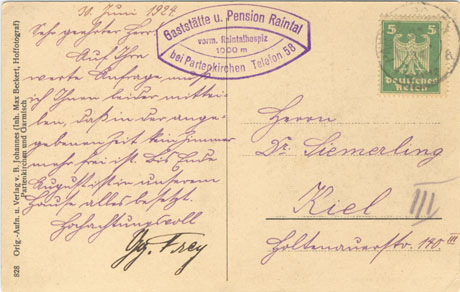 30. Juni 1924.
Sehr geehrter Herr
Auf Ihre
werte Anfrage, muß
ich Ihnen leider mittei-
len, daß in der ange-
gebenen Zeit kein Zimmer
mehr frei ist. Bis Ende
August ist in unserem
Hause alles besetzt.
Hochachtungsvoll
Gg. Frey
Gaststätte u. Pension Raintal
vorm. Raintalhospiz
1000 m
bei Partenkirchen Telefon 58
5 5
Deutsches
Reich
Herrn
Dr. Siemerling
Kiel
III
Holtenauerstr. 140 III
828 Orig.-Aufn. u. Verlag v. B. Johannes (Inh. Max Beckert, Hoffotograf)
Partenkirchen und Garmisch